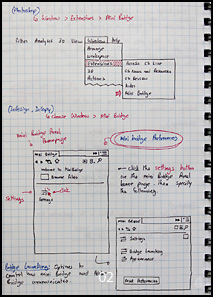 (Photoshop)
↳ Window > Extensions > Mini Bridge
Filter Analysis 3D View Window Help
Arrange
Workspace
Extensions
Access CS Live
CS News and Resources
CS Review
Kuler
Mini Bridge
3D
Actions
(InDesign, InCopy)
↳ choose Window > Mini Bridge
Mini Bridge Panel
Homepage
Mini Bridge Preferences
Mini Bridge
Welcome to Mini Bridge
Browse Files
Settings
click
Settings
← click the Settings button
on the Mini Bridge Panel
home page, then specify
following:
Mini Bridge
Settings
Bridge Launching
Appearance
Reset Preferences
Bridge Launching: Options to
control how Mini Bridge and Adobe
Bridge communicates.
02